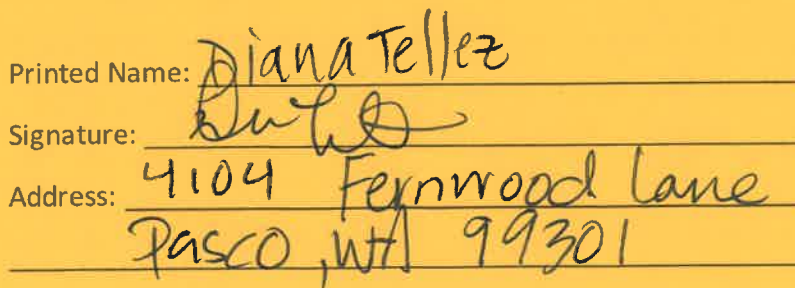 Printed Name: Diana Tellez
Signature:
Address: 4104 Fernwood Lane
Pasco, WA 99301